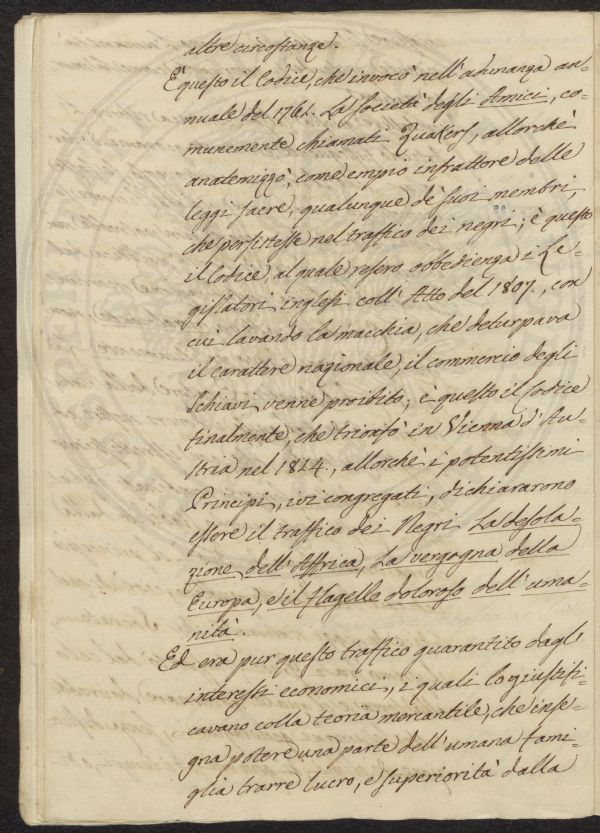 altre circostanze.
È questo il Codice, che invocò nell'adunanza an-
nuale del 1761. La Società degli Amici, co-
munemente chiamati Quakers, allorchè
anatemizzò, come empio infrattore delle
leggi sacre, qualunque de' suoi membri,
che persistesse nel traffico dei negri; è questo
il Codice, al quale resero obbedienza i Le-
gislatori inglesi coll'Atto del 1807., con
cui lavando la macchia, che deturpava
il carattere nazionale, il commercio degli
Schiavi venne proibito; è questo il Codice
finalmente, che trionfò in Vienna d'Au-
stria nel 1814., allorchè i potentissimi
Principi, ivi congregati, dichiararono
essere il traffico dei Negri La desola-
zione dell'Affrica, La vergogna della
Europa, e il flagello doloroso dell'uma-
nità.
Ed era pur questo traffico guarantito dagli
interessi economici, i quali lo giustifi-
cavano colla teoria mercantile, che inse-
gna potere una parte dell'umana fami-
glia trarre lucro, e superiorità dalla